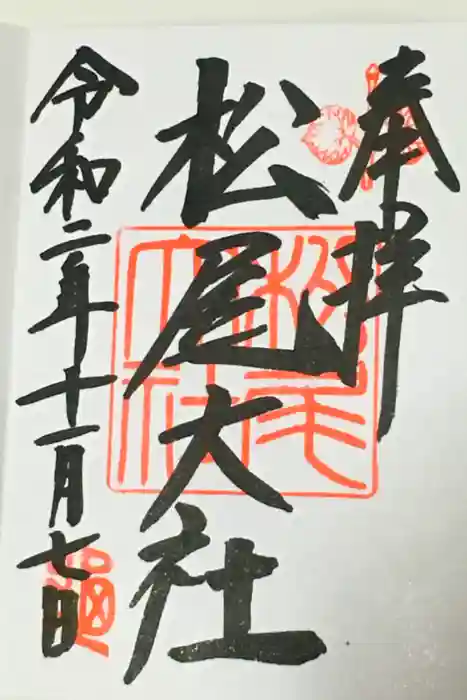 奉拝
松尾大社
令和二年十一月七日
松尾大社